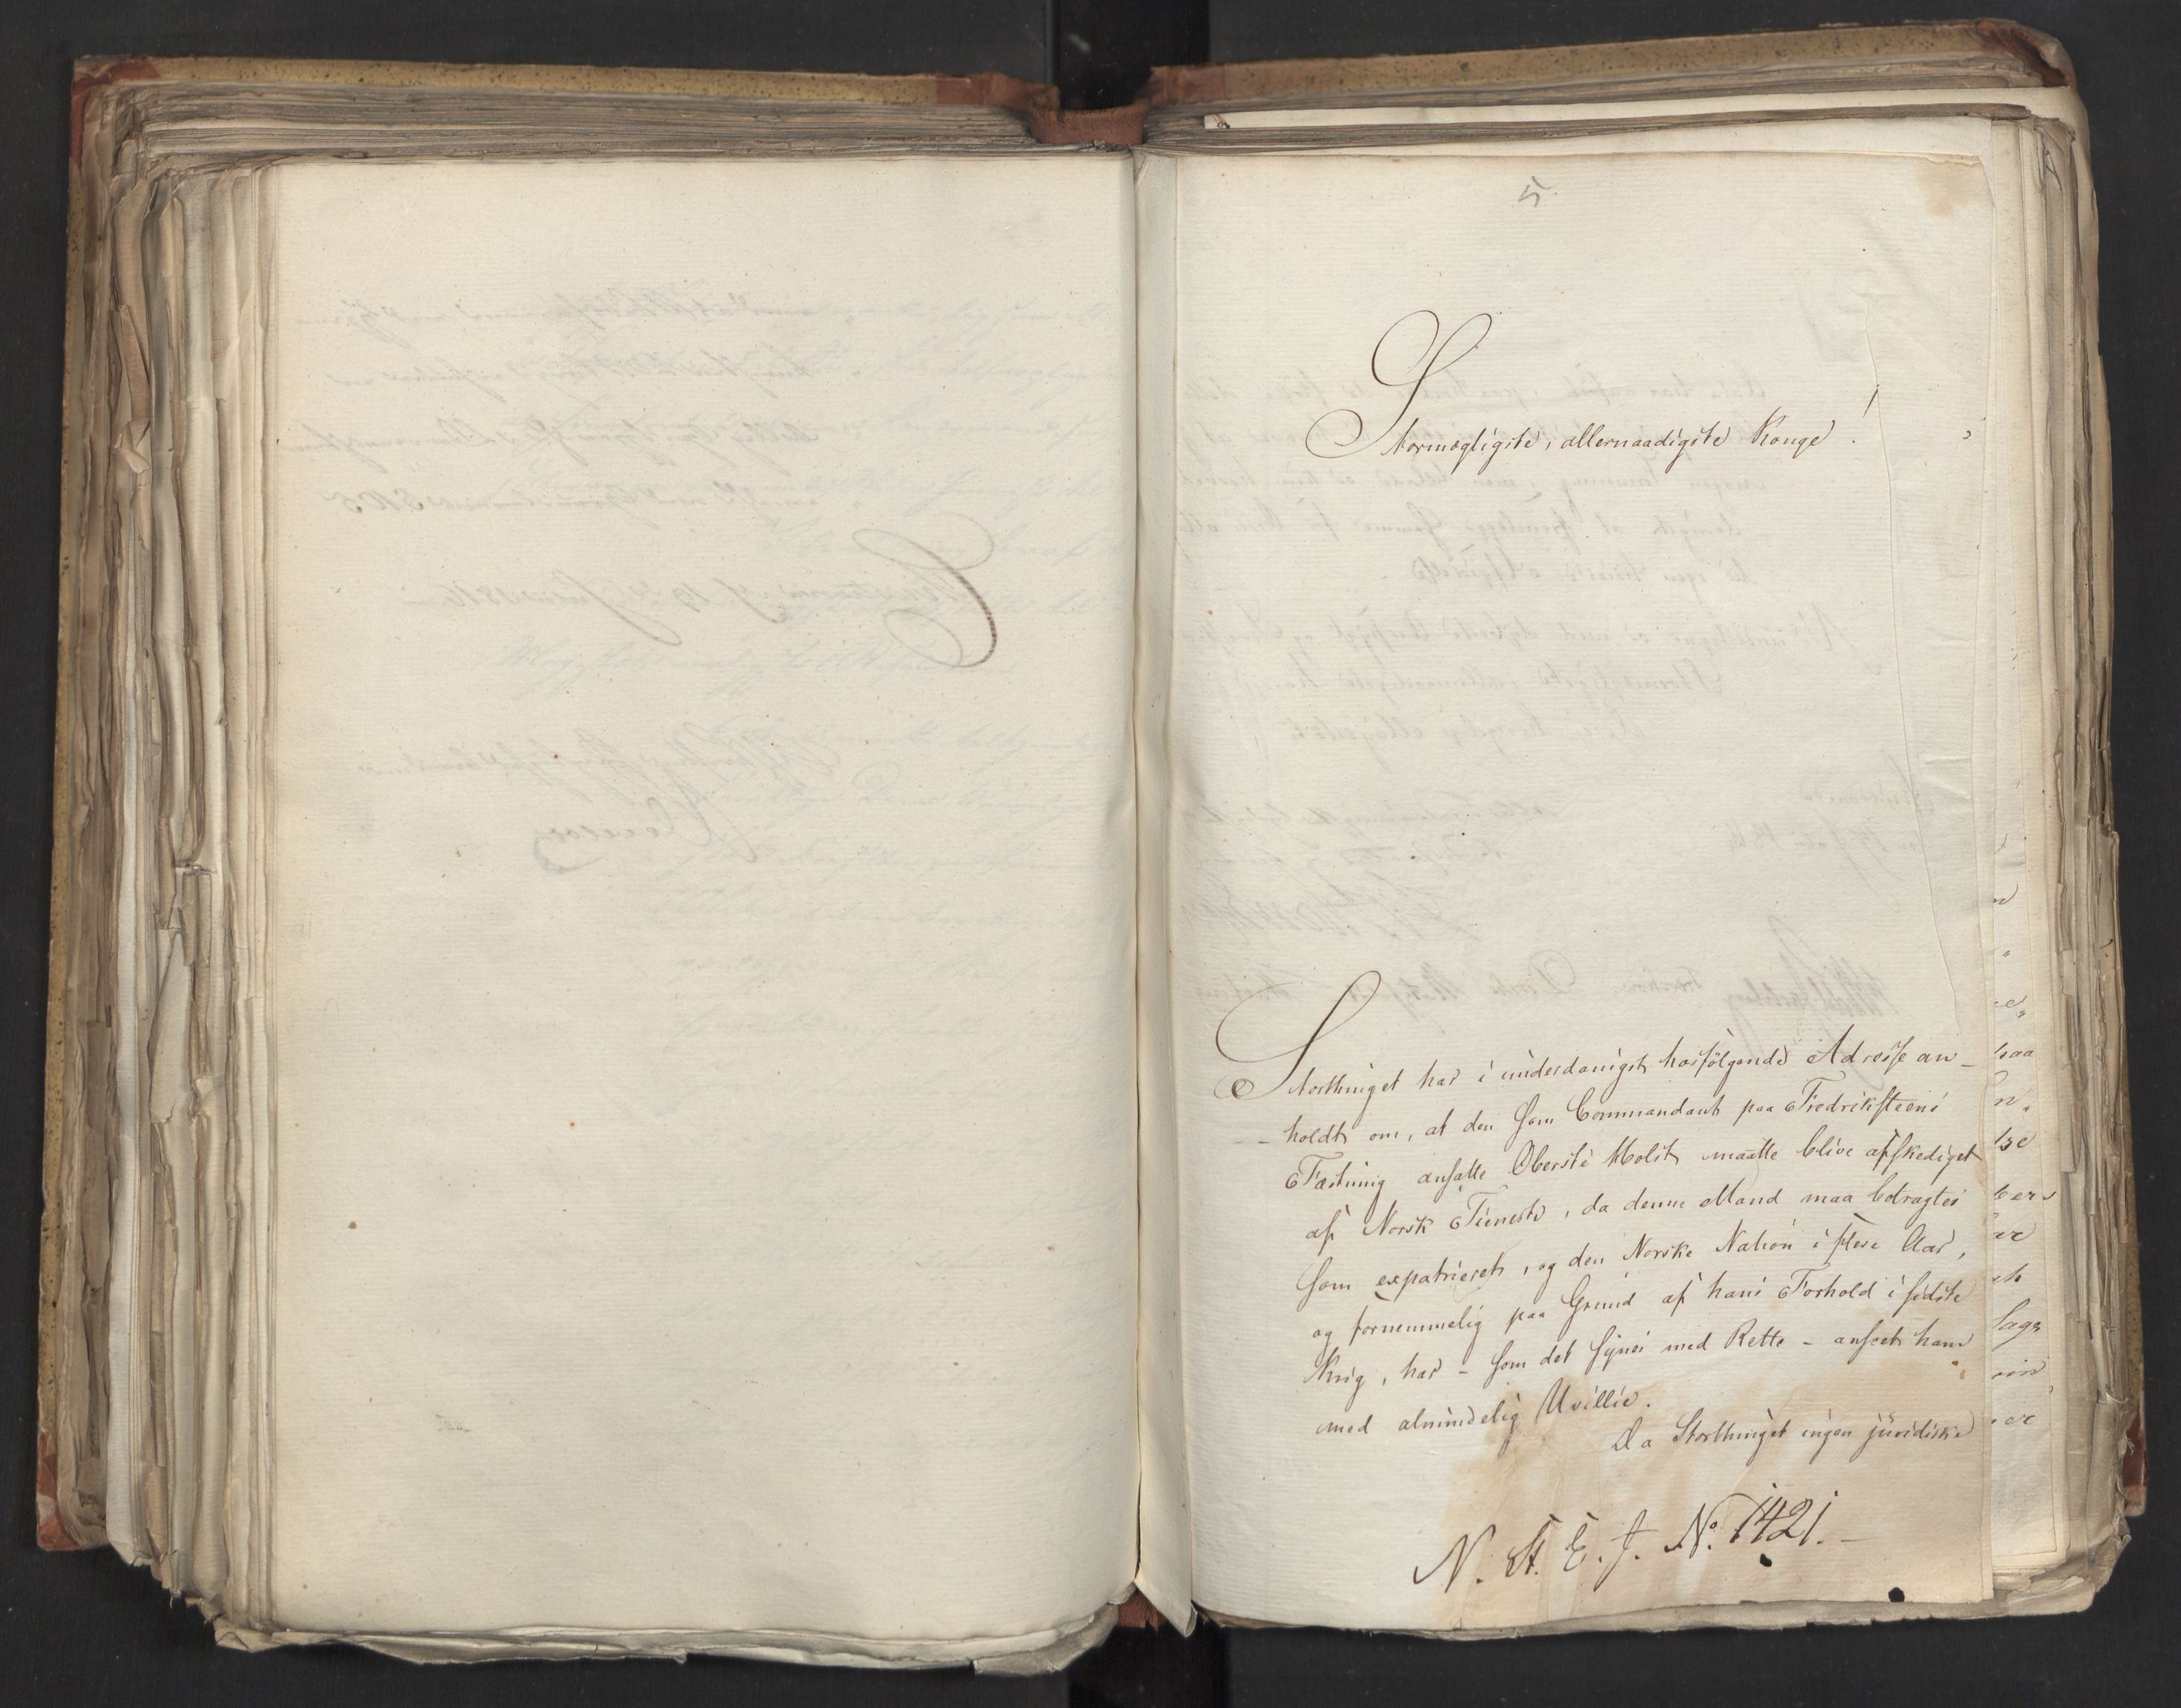 5.
Stormægtigste, allernaadigste Konge!
Storthinget har i underdanigst hosfølgende Adresse an-
-holdt om, at den som Commandant paa Fredriksteens
Fæstning ansatte Oberste Holst maatte blive afskediget
af Norsk Tieneste, da denne Mand maa betragtes
som expatrieret, og den Norske Nation i flere Aar,
og fornemmelig paa Grund af hans Forhold i sidste
Krig, har - som det synes med Rette - anseet ham
med almindelig Uvillie.
Da Storthinget ingen juridiske
N. St. E. J. No. 1421.-